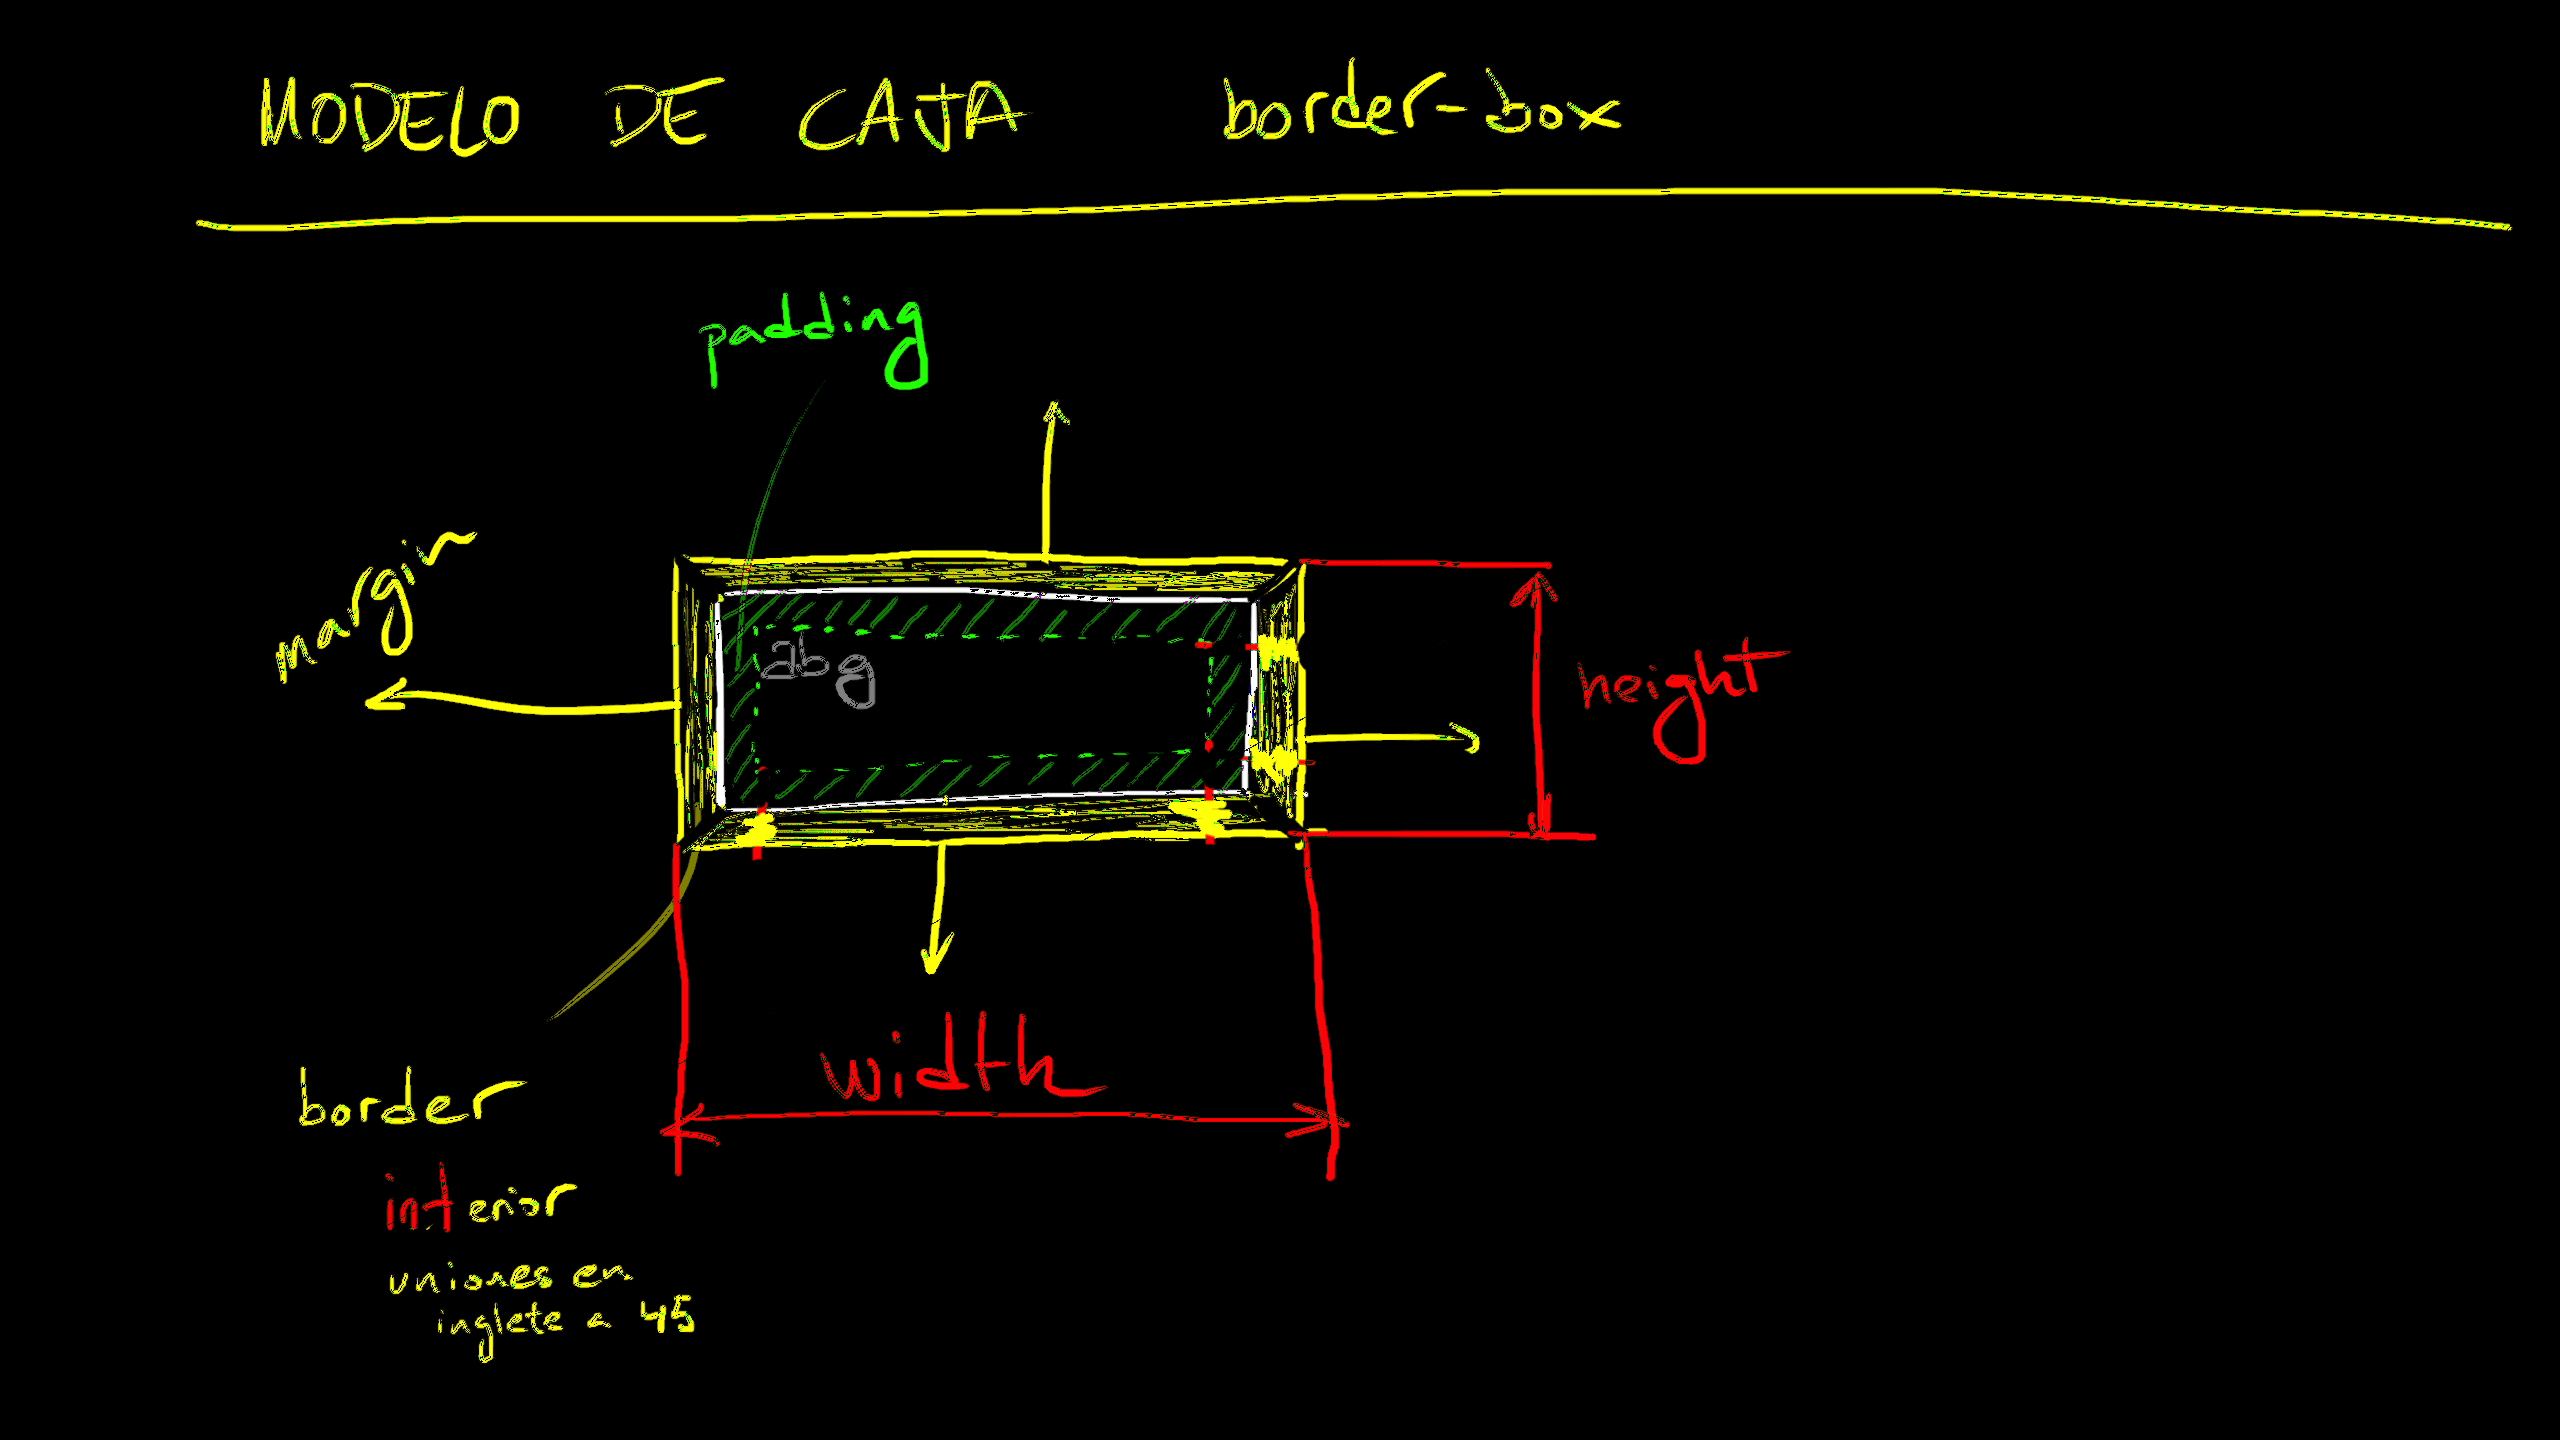 MODELO DE CAJA border-box
padding
margin
abg
height
width
border
interior
uniones en
inglete a 45